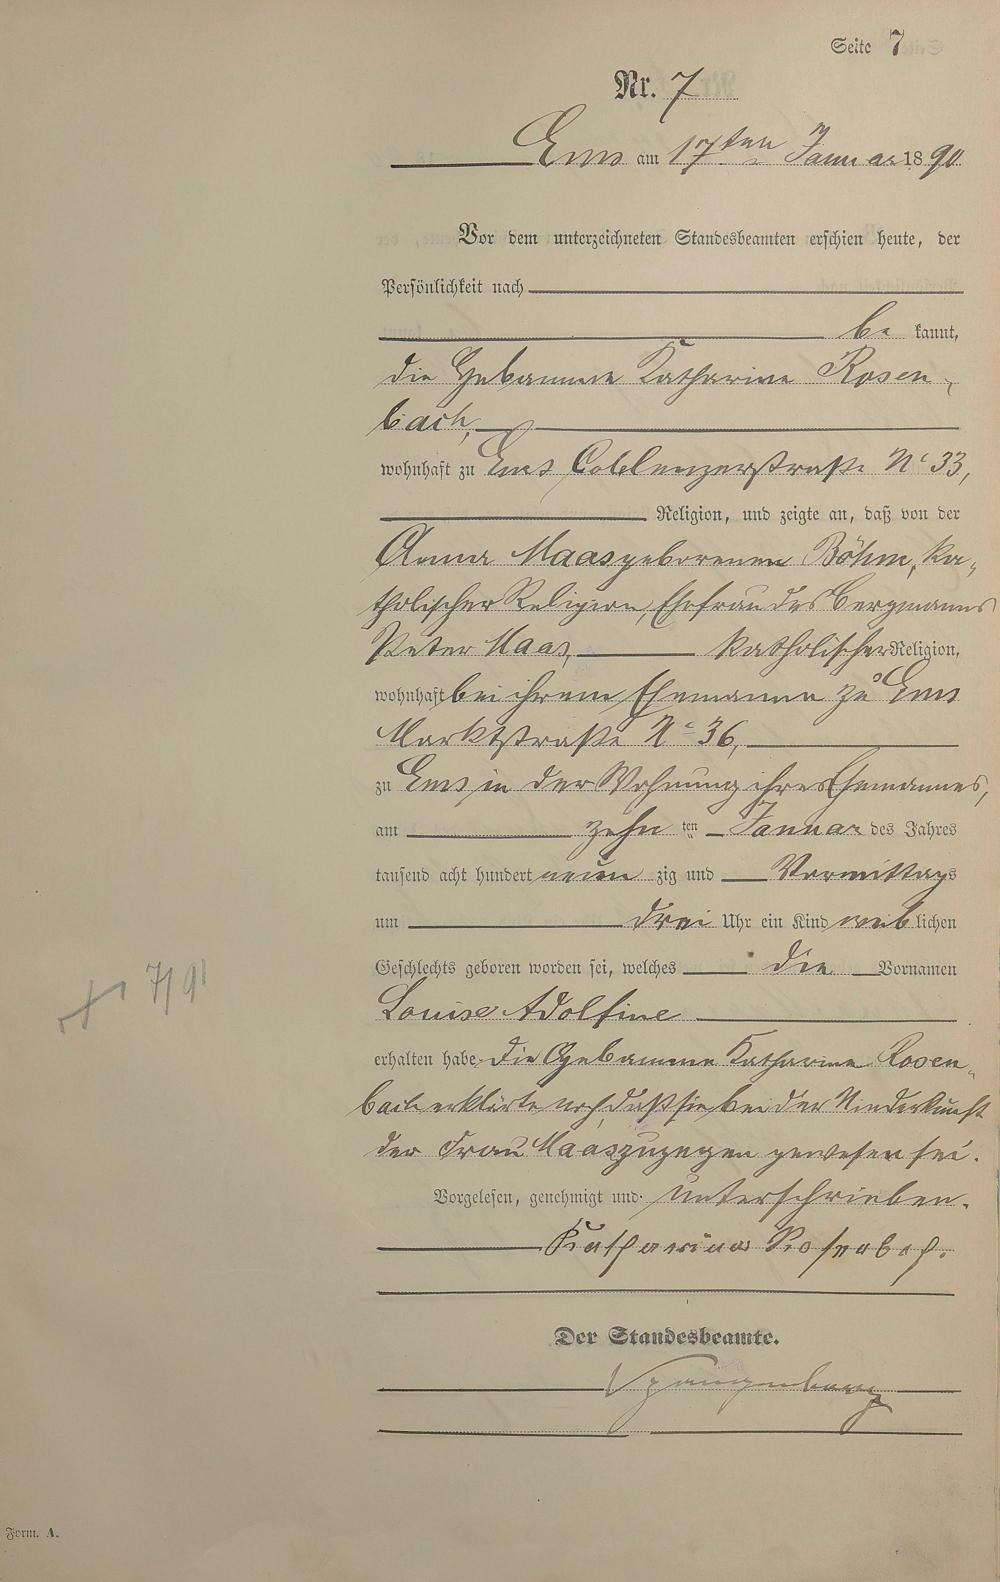 Seite 7
Nr. 7
Ems am 17ten Januar 1890
Vor dem unterzeichneten Standesbeamten erschien heute, der
Persönlichkeit nach
be kannt,
die Hebamme Katharine Rosen-
bach,
wohnhaft zu Ems Coblenzerstraße No 33,
Religion, und zeigte an, daß von der
Anna Maas geborenen Böhm, ka-
tholischer Religion, Ehefrau des Bergmanns
Peter Maas, katholischer Religion,
wohnhaft bei ihrem Ehemanne zu Ems
Marktstraße No 36,
zu Ems in der Wohnung ihres Ehemannes,
am zehn ten Januar des Jahres
tausend acht hundert neun zig und Vormittags
um drei Uhr ein Kind weiblichen
Geschlechts geboren worden sei, welches die Vornamen
Louise Adolfine
erhalten habe. Die Hebamme Katharine Rosen-
bach erklärte noch, daß sie bei der Niederkunft
der Frau Maas zugegen gewesen sei.
Vorgelesen, genehmigt und unterschrieben.
Katharina Rosenbach.
Der Standesbeamte.
Spangenberg
+ 7/91
Form. A.